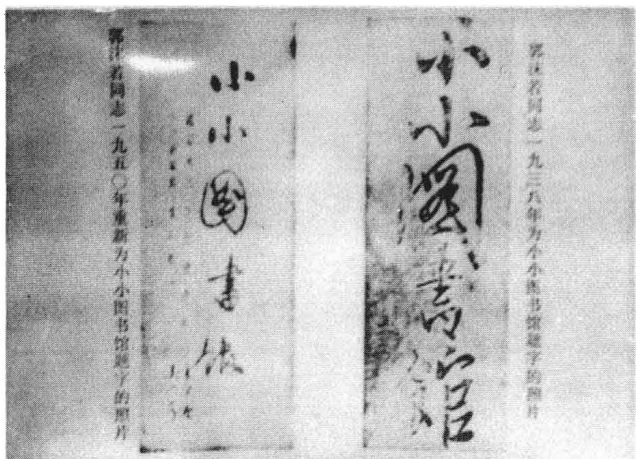 郭沫若同志一九三八年为小小图书馆题字的照片
小小圖書館
小小圖書館
郭沫若同志一九五〇年重新为小小图书馆题字的照片